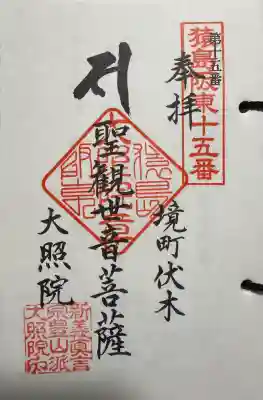 第十五番
猿島阪東十五番
奉拝
境町伏木
聖観世音菩薩
大照院
新義真言
宗豊山派
大照院内